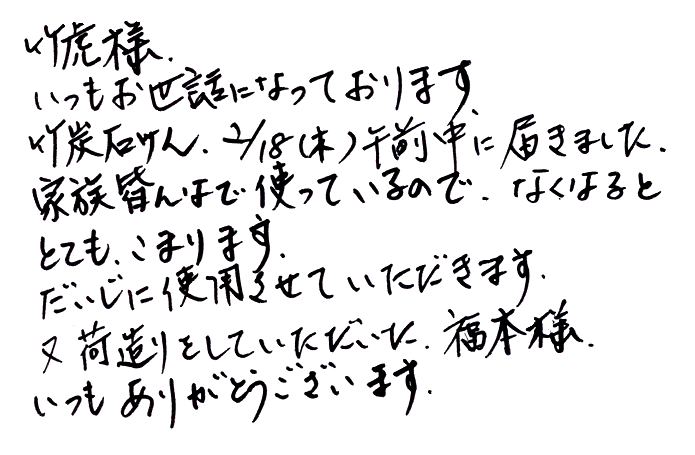 竹虎様.
いつもお世話になっております.
竹炭石けん、2/18(木)午前中に届きました.
家族皆んなで使っているので、なくなると
とても、こまります.
だいじに使用させていただきます.
又荷造りをしていただいた、福本様.
いつもありがとうございます.